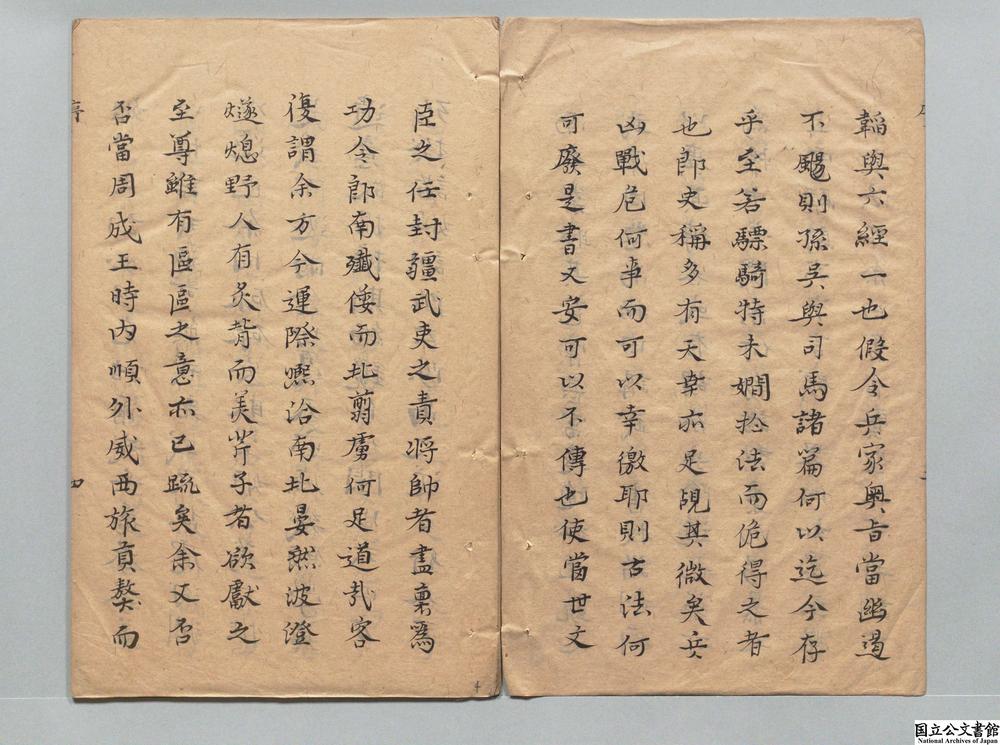 韜與六經一也假令兵家奧旨當幽遏
不颺則孫吳與司馬諸篇何以迄今存
乎至若驃騎特未嫺於法而佹得之者
也郎史稱多有天幸亦足覘其微矣兵
凶戰危何事而可以幸徼耶則古法何
可廢是書又安可以不傳也使當世文
臣之任封疆武吏之責將帥者盡稟爲
功令郎南殲倭而北剪虜何足道㢤客
復謂余方今運際熈洽南北晏然波澄
燧熄野人有炙背而美芹子者欲獻之
至尊雖有區區之意亦已踈矣余又否
否當周成王時內順外威西旅貢獒而
四
国立公文書館
National Archives of Japan